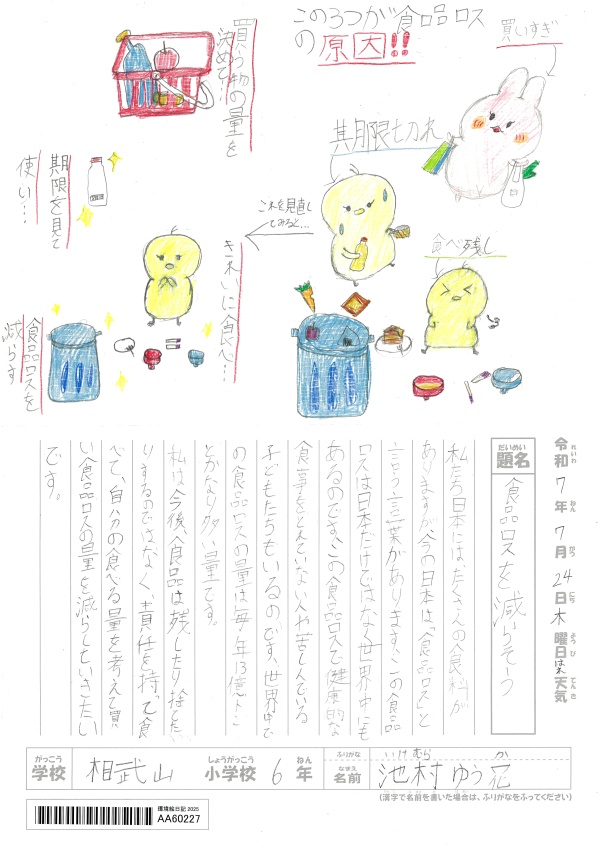 この3つが食品ロス
の原因!!
買いすぎ
其月限七刀れ
食べ残し
これを見直し
てみると…
買う物の量を
決めて…
期限を見て
使い…
きれいに食べ…
食品ロスを
減らす
令和7年7月24日木曜日はれ天気
れいわ ねん がつ にち ようび てんき
だいめい
題名 食品ロスを減らそう
私たち日本には、たくさんの食料が
ありますが今の日本は「食品ロス」と
言う言葉があります。この食品
ロスは日本だけではなく世界中にも
あるのです。この食品ロスで健康的な
食事をとれていない人や苦しんでいる
子どもたちもいるのです。世界中で
の食品ロスの量は毎年13億トン
とかなり多い量です。
私は今後、食品は残したり捨てた
りするのではなく、責任を持って食
べて、自分の食べる量を考えて買
い食品ロスの量を減らしていきたい
です。
がっこう しょうがっこう ねん ふりがな いけむら か
学校 相武山 小学校 6年 なまえ 名前 池村ゆう花
(漢字で名前を書いた場合は、ふりがなをふってください)
環境絵日記 2025
AA60227